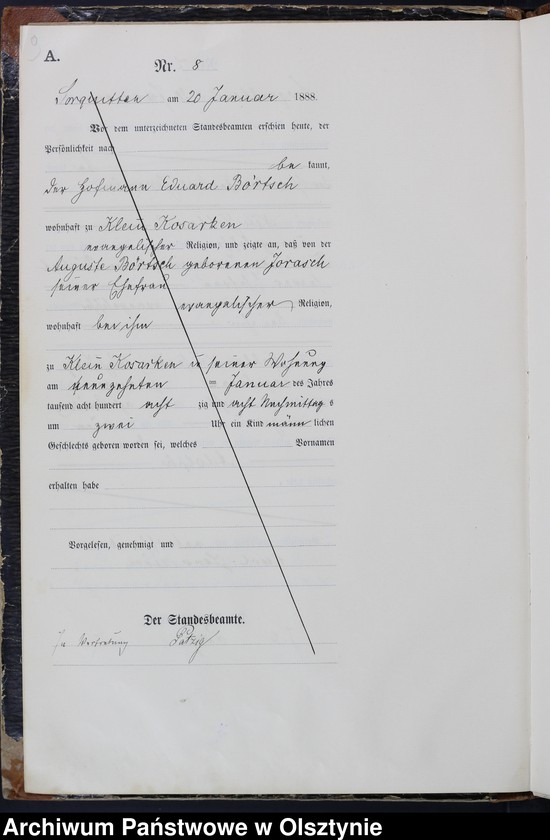 A.
Nr. 8
Sorquitten am 20 Januar 1888.
Vor dem unterzeichneten Standesbeamten erschien heute, der
Persönlichkeit nach
be kannt,
der Hofmann Eduard Börtsch
wohnhaft zu Klein Kosarken
evangelischer Religion, und zeigte an, daß von der
Auguste Börtsch geborenen Jorasch
seiner Ehefrau
evangelischer Religion,
wohnhaft bei ihm
zu Klein Kosarken in seiner Wohnung
am neunzehnten Januar des Jahres
tausend acht hundert acht zig und acht Nachmittag s
um zwei Uhr ein Kind männ lichen
Geschlechts geboren worden sei, welches Vornamen
erhalten habe
Vorgelesen, genehmigt und
Der Standesbeamte.
In Vertretung
Archiwum Państwowe w Olsztynie